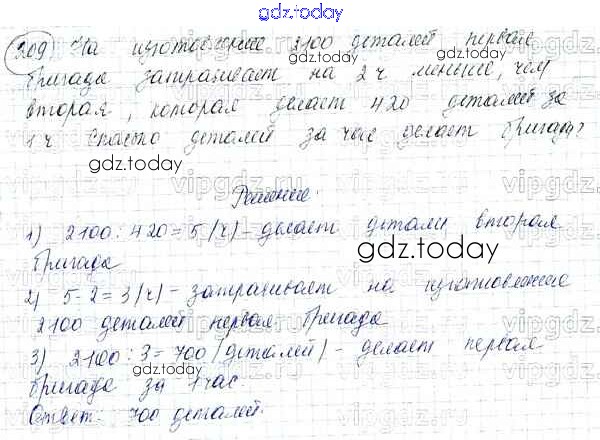 gdz.today
209) На изготовление 2100 деталей первая
бригада затрачивает на 2 ч меньше, чем
вторая, которая делает 420 деталей за
1 ч. Сколько деталей за час делает бригада?
gdz.today
Решение.
1) 2100 : 420 = 5 (ч) - делает детали вторая
бригада
gdz.today
2) 5 - 2 = 3 (ч) - затрачивает на изготовление
2100 деталей первая бригада
3) 2100 : 3 = 700 (деталей) - делает первая
бригада за 1 час.
gdz.today
Ответ: 700 деталей.